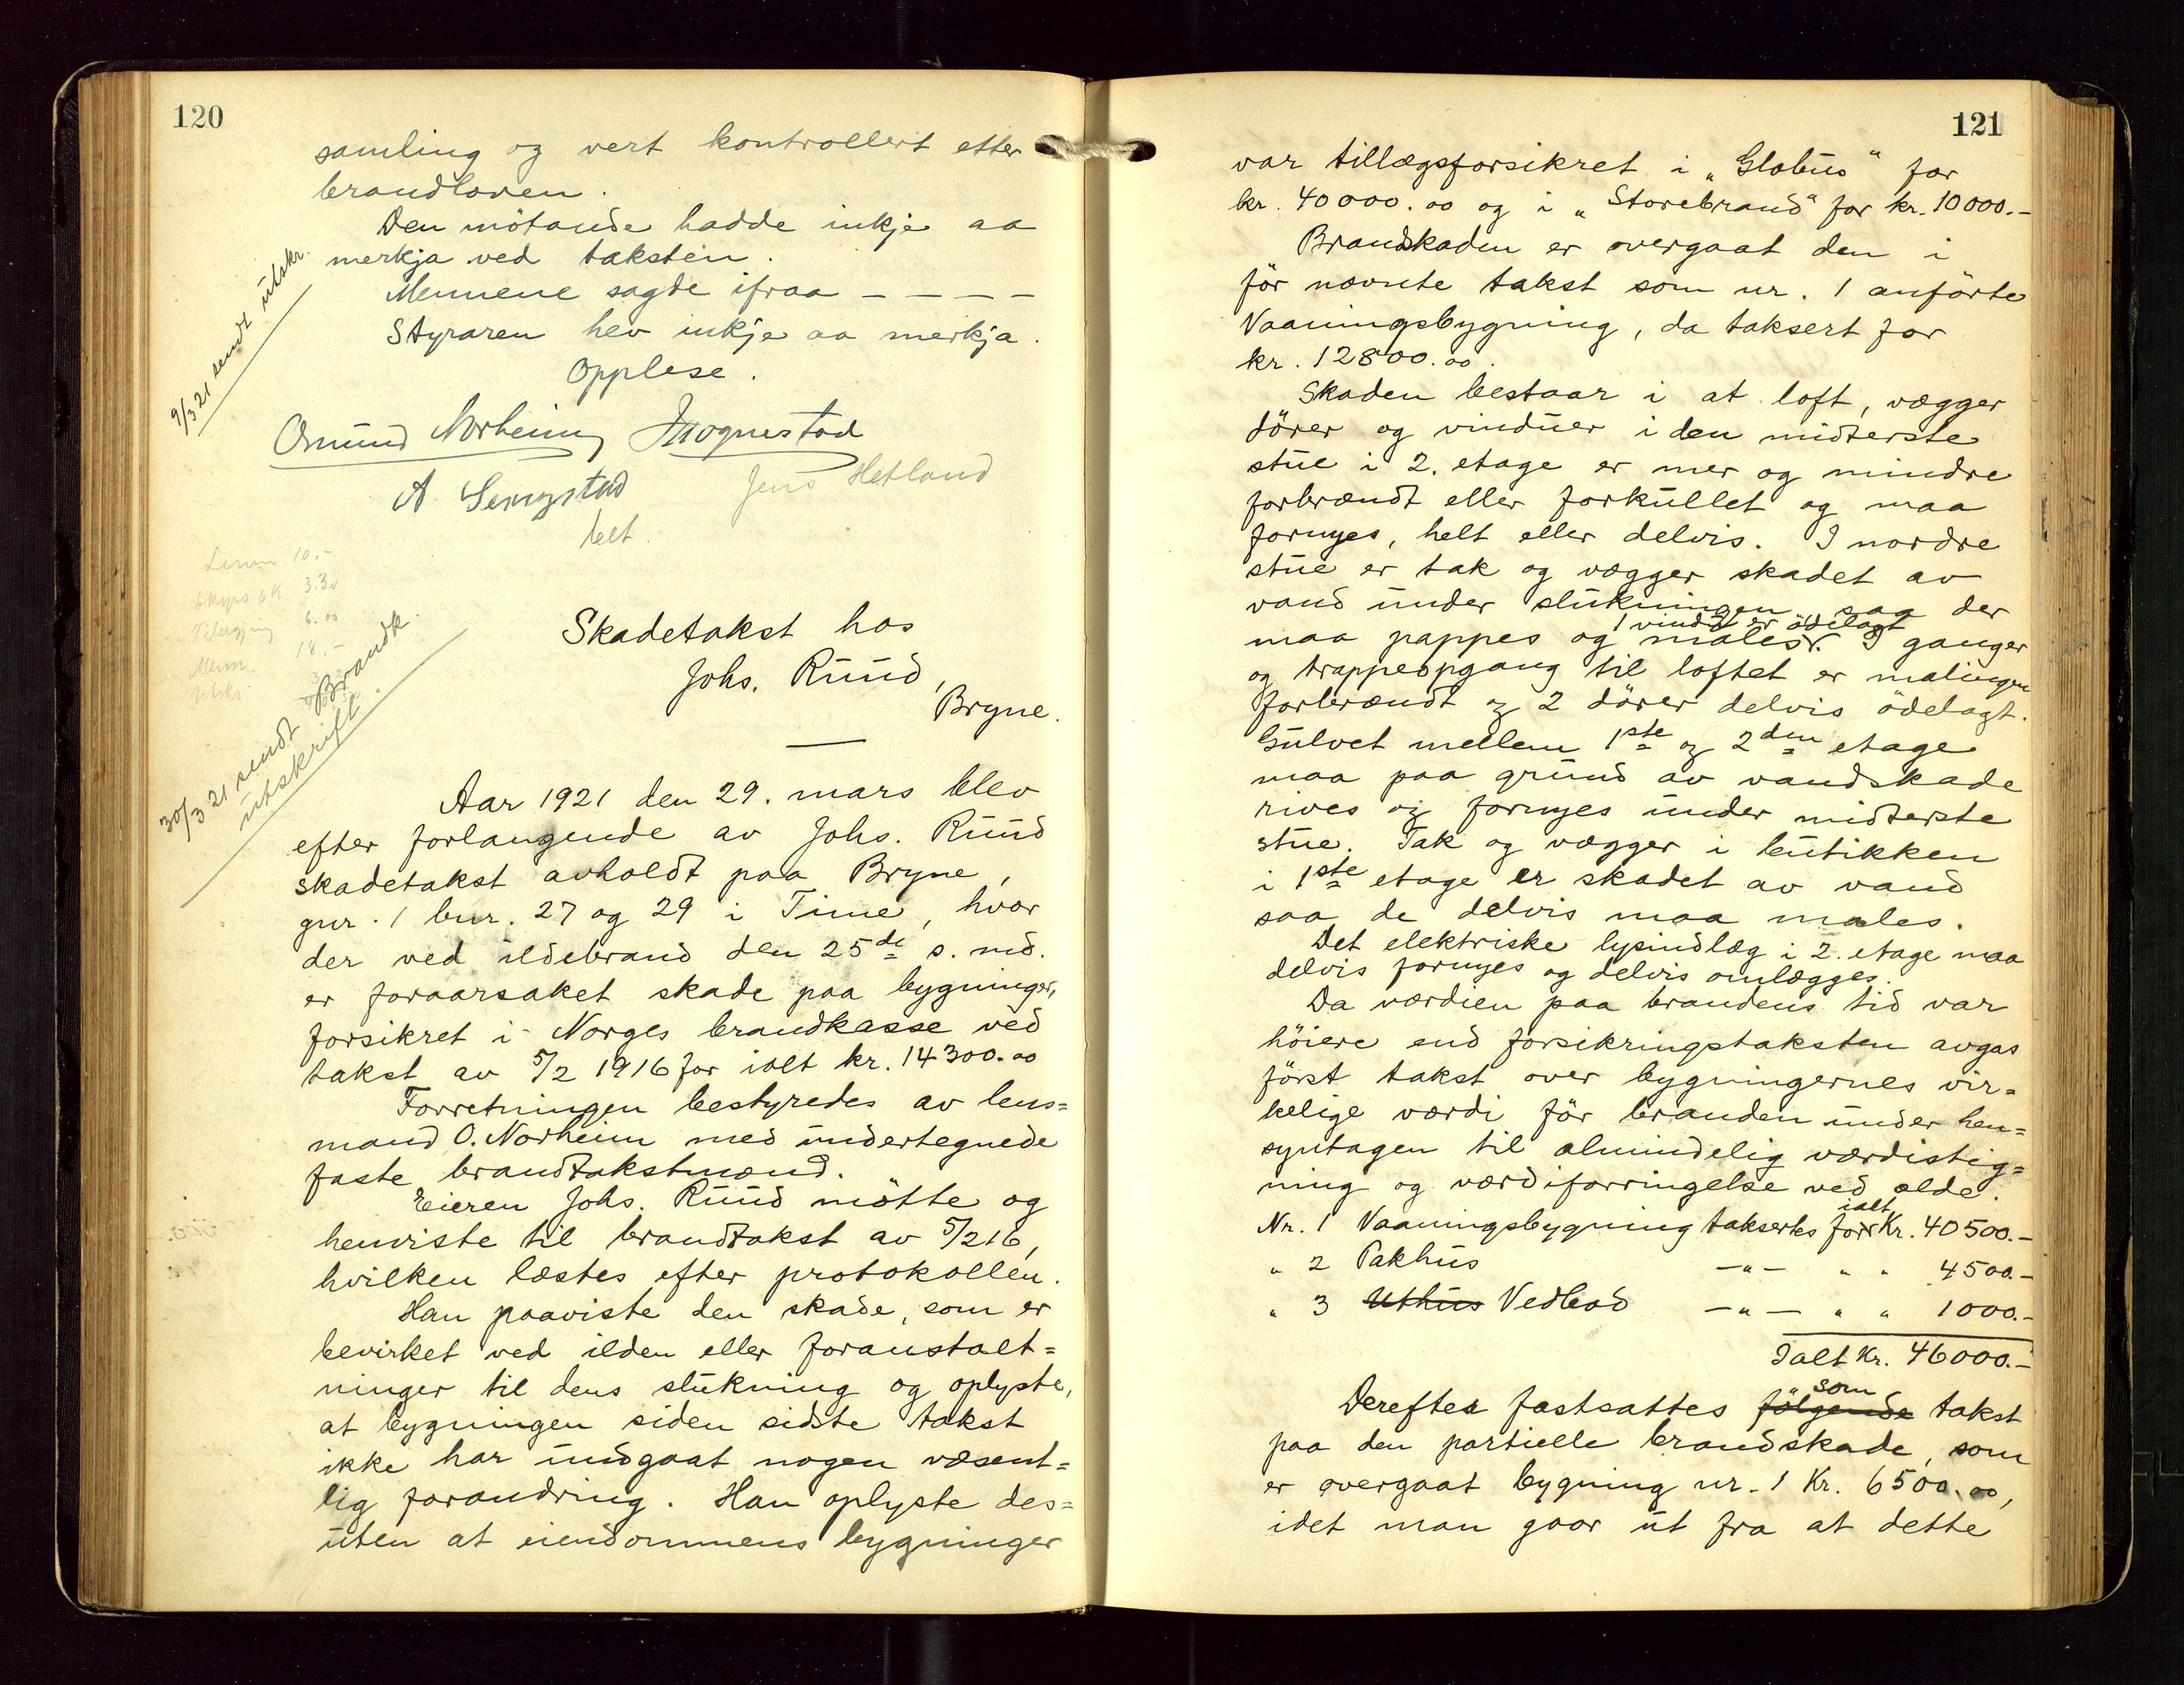 120
samling og vert kontrollert etter
brandloven.
Den mötande hadde inkje aa
merkja ved taksten.
Mennene sagde ifraa – – – –
Styraren hev inkje aa merkja.
Opplese.
9/3 21 sendt utskr.
Osmund Norheim
A
Jens Hetland
Skyss 6 K 3.30
6.00
Menn. 18.-
Utskr.
Skadetakst hos
Johs. Ruud,
Bryne.
30/3 21 sendt Brandk.
utskrift.
Aar 1921 den 29. mars blev
efter forlangende av Johs. Ruud
skadetakst avholdt paa Bryne,
gnr. 1 bnr. 27 og 29 i Time, hvor
der ved ildebrand den 25de s. md.
er foraarsaket skade paa bygninger,
forsikret i Norges brandkasse ved
takst av 5/2 1916 for ialt kr. 14300.00
Forretningen bestyredes av lens=
mand O. Norheim med undertegnede
faste brandtakstmænd.
Eieren Johs. Ruud mötte og
henviste til brandtakst av 5/2 16,
hvilken læstes efter protokollen.
Han paaviste den skade, som er
bevirket ved ilden eller foranstalt=
ninger til dens slukning og oplyste,
at bygningen siden sidste takst
ikke har undgaat nogen væsent=
lig forandring. Han oplyste des=
uten at eiendommens bygninger
121
var tillægsforsikret i „Globus" for
kr. 40000.00 og i „Storebrand" for kr. 10000.-
Brandskaden er overgaat den i
för nævnte takst som nr. 1 anförte
Vaaningsbygning, da taksert for
kr. 12800.00.
Skaden bestaar i at loft, vægger
dörer og vinduer i den midterste
stue i 2. etage er mer og mindre
forbrændt eller forkullet og maa
fornyes, helt eller delvis. I nordre
stue er tak og vægger skadet av
vand under slukningen saa der
1 vindu er ödelagt
maa pappes og males. I ganger
og trappeopgang til loftet er malingen
forbrændt og 2 dörer delvis ödelagt.
Gulvet mellem 1ste og 2den etage
maa paa grund av vandskade
rives og fornyes under midterste
stue. Tak og vægger i butikken
i 1ste etage er skadet av vand
saa de delvis maa males.
Det elektriske lysindlæg i 2. etage maa
delvis fornyes og delvis omlægges.
Da værdien paa brandens tid var
höiere end forsikringstaksten avgas
först takst over bygningernes vir=
kelige værdi för branden under hen=
syntagen til almindelig værdistig=
ning og værdiforringelse ved ælde.
ialt
Nr. 1 Vaaningsbygning taksertes for Kr. 40500.-
„ 2 Pakhus –„– „ „ 4500.-
„ 3 Uthus Vedbod –„– „ „ 1000.-
Ialt Kr. 46000.-
som
Derefter fastsattes fölgende takst
paa den partielle brandskade, som
er overgaat bygning nr. 1 Kr. 6500.00,
idet man gaar ut fra at dette